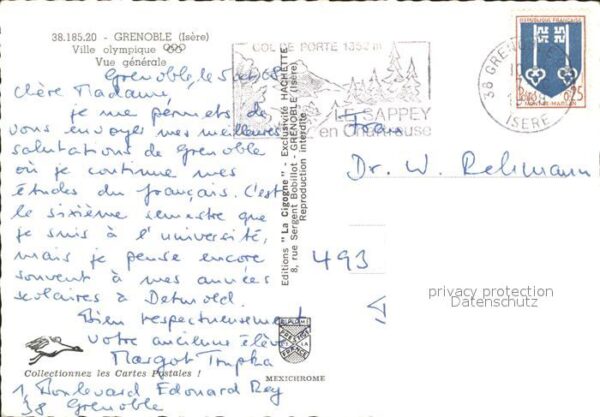 38.185.20 - GRENOBLE (Isère)
Ville olympique
Vue générale
Grenoble, le 5 oct 68
Chère Madame,
je me permets de
vous envoyer mes meilleures
salutations de Grenoble
où je continue mes
études du français. C'est
le sixième semestre que
je suis à l'université,
mais je pense encore
souvent à mes années
scolaires à Detmold.
Bien respectueusement
votre ancienne élève
Margot Trupka
Collectionnez les Cartes Postales !
1, Boulevard Edouard Rey
38 Grenoble
Editions "La Cigogne" - Exclusivité HACHETTE
8, rue Sergent Bobillot - GRENOBLE (Isère)
Reproduction interdite
MEXICHROME
COL DE PORTE 1352 m
LE SAPPEY
en Chartreuse
38 GRENOBLE
ISERE
REPUBLIQUE FRANÇAISE
0,25
MONT-DE-MARSAN
Frau
Dr. W. Rehmann
493
privacy protection
Datenschutz